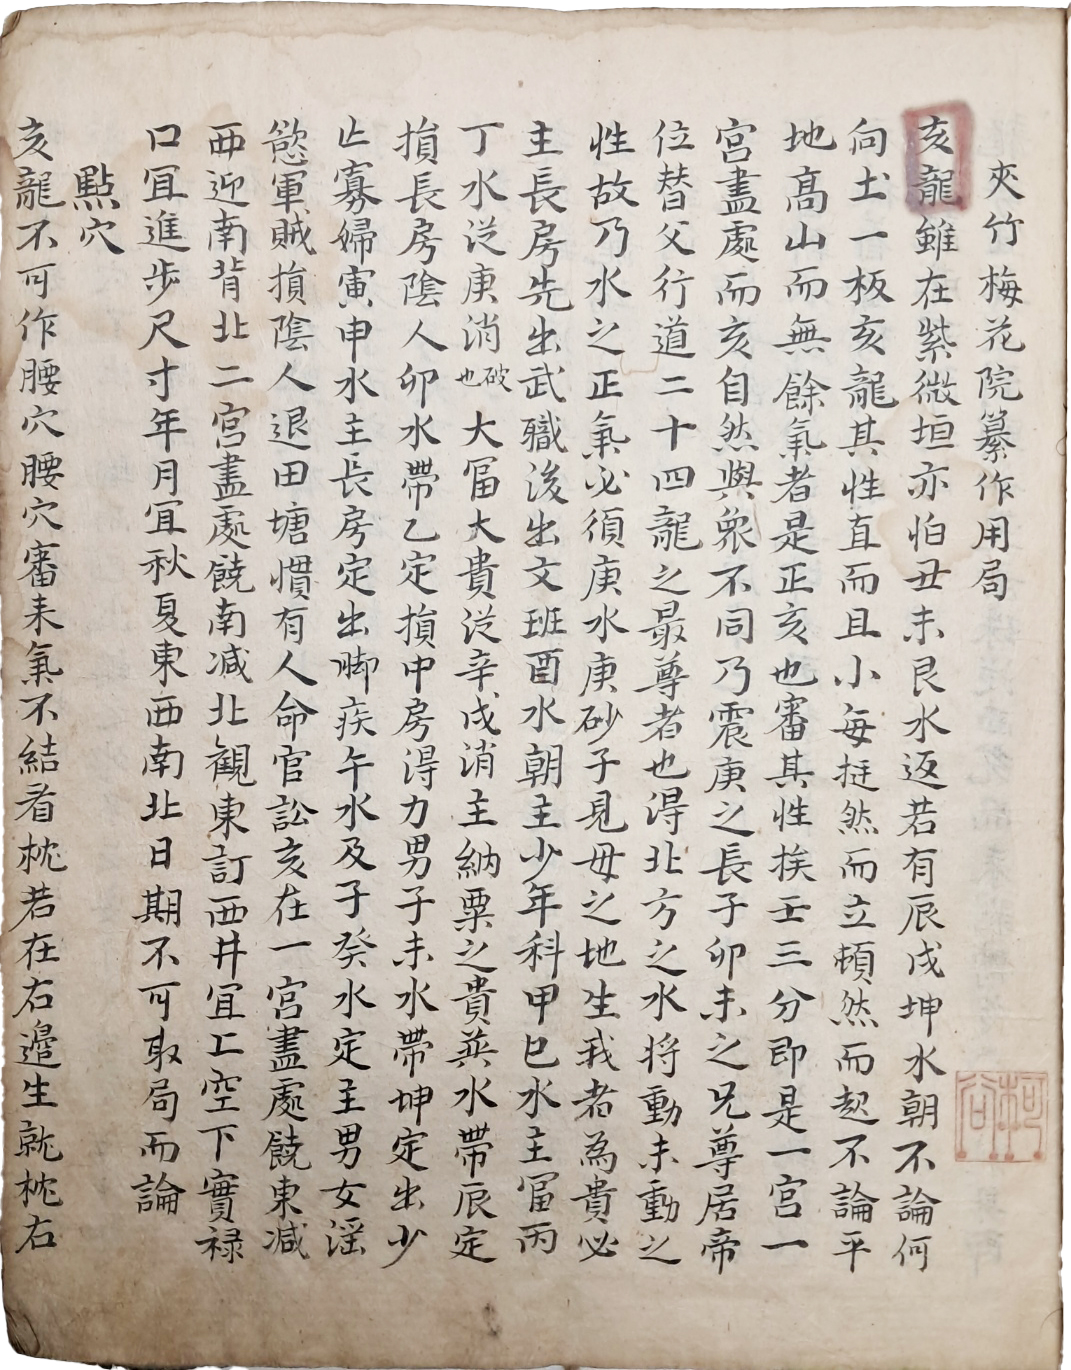 夾竹梅花院纂作用局
亥龍雖在紫微垣亦怕丑未艮水返若有辰戌坤水朝不論何
向圡一板亥龍其性直而且小每挺然而立頓然而起不論平
地髙山而無餘氣者是正亥也審其性挨壬三分即是一宮一
宮盡處而亥自然與衆不同乃震庚之長子卯未之兄尊居帝
位替父行道二十四龍之最尊者也淂北方之水将動未動之
性故乃水之正氣必須庚水庚砂子見母之地生我者為貴必
主長房先出武職後出文班酉水朝主少年科甲巳水主冨丙
丁水從庚消破也大冨大貴從辛戌消主納粟之貴巽水帶辰定
損長房陰人卯水帶乙定損中房淂力男子未水帶坤定出少
亡寡婦寅申水主長房定出脚疾午水及子癸水定主男女滛
慾軍賊損陰人退田塘慣有人命官訟亥在一宮盡處饒東减
西迎南背北二宮盡處饒南减北觀東訂西井冝上空下實禄
口冝進步尺寸年月冝秋夏東西南北日期不可取局而論
點穴
亥龍不可作腰穴腰穴審耒氣不結看枕若在右邉生就枕右